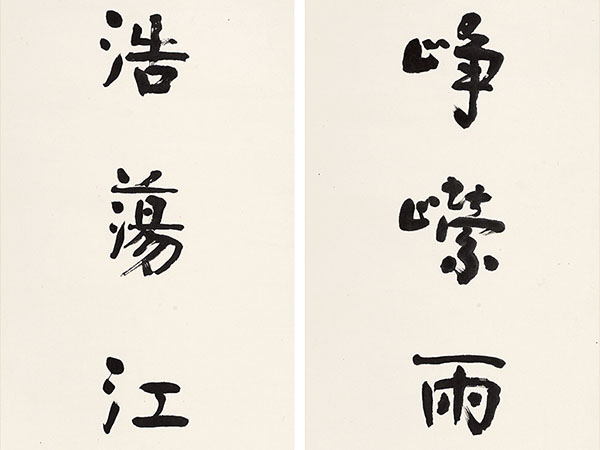 崢嶸雨
浩蕩江